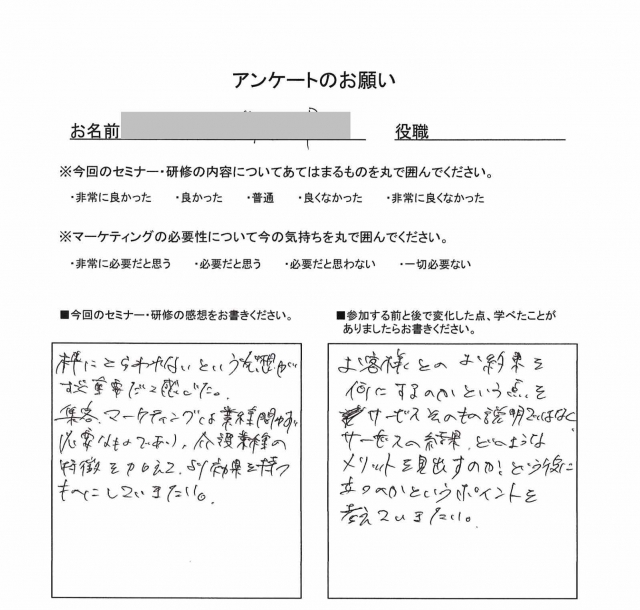 アンケートのお願い
お名前 役職
※今回のセミナー・研修の内容についてあてはまるものを丸で囲んでください。
・非常に良かった ・良かった ・普通 ・良くなかった ・非常に良くなかった
※マーケティングの必要性について今の気持ちを丸で囲んでください。
・非常に必要だと思う ・必要だと思う ・必要だと思わない ・一切必要ない
■今回のセミナー・研修の感想をお書きください。
枠にとらわれないという発想が
重要だと感じた。
集客、マーケティングは業種問わず
必要なものであり、介護業種の
特徴をふまえて、より効果を持つ
ものにしていきたい。
■参加する前と後で変化した点、学べたことが
ありましたらお書きください。
お客様とのお約束を
何にするのかという点を
サービスそのもの説明ではなく
サービスの結果、どのような
メリットを見出すのか、どう役に
立つのかというポイントを
考えていきたい。